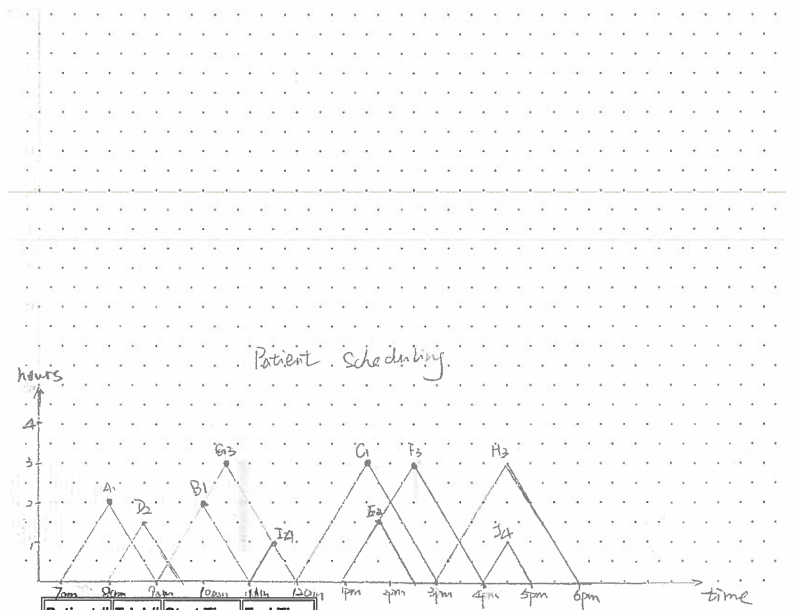 Patient Scheduling
hours
4
3
2
1
A1
D2
B1
G3
I4
C1
F3
E2
H3
J4
7am 8am 9am 10am 11am 12am 1pm 2pm 3pm 4pm 5pm 6pm
time
Patient # Trial # Start Time End Time